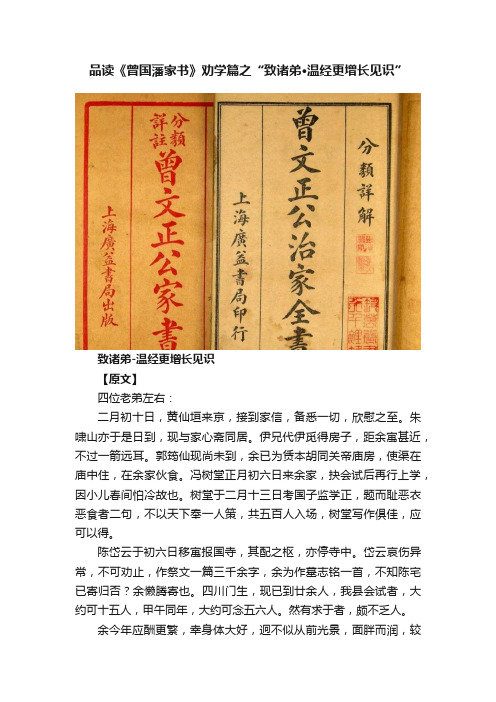 品读《曾国藩家书》劝学篇之“致诸弟·温经更增长见识”
分類
詳註
曾文正公家書
上海廣益書局出版
分類詳解
曾文正公治家全書
上海廣益書局印行
致诸弟-温经更增长见识
【原文】
四位老弟左右：
二月初十日，黄仙垣来京，接到家信，备悉一切，欣慰之至。朱
啸山亦于是日到，现与家心斋同居。伊兄代伊觅得房子，距余寓甚近，
不过一箭远耳。郭筠仙现尚未到，余已为赁本胡同关帝庙房，使渠在
庙中住，在余家伙食。冯树堂正月初六日来余家，抉会试后再行上学，
因小儿春间怕冷故也。树堂于二月十三日考国子监学正，题而耻恶衣
恶食者二句，不以天下奉一人策，共五百人入场，树堂写作俱佳，应
可以得。
陈岱云于初六日移寓报国寺，其配之枢，亦停寺中。岱云哀伤异
常，不可劝止，作祭文一篇三千余字，余为作墓志铭一首，不知陈宅
已寄归否？余懒腾寄也。四川门生，现已到廿余人，我县会试者，大
约可十五人，甲午同年，大约可念五六人。然有求于者，颇不乏人。
余今年应酬更繁，幸身体大好，迥不似从前光景，面胖而润，较